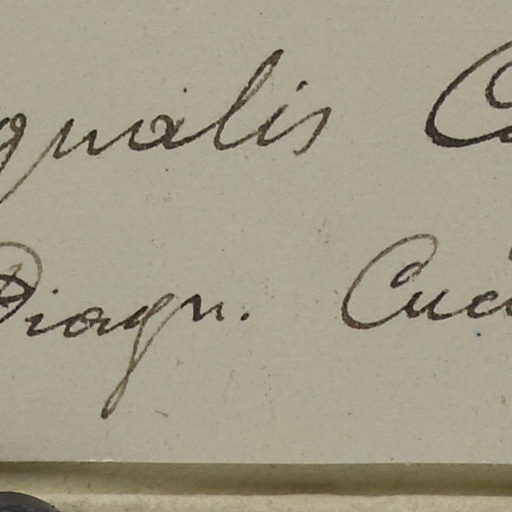 qualis C
Diagn. Cuc